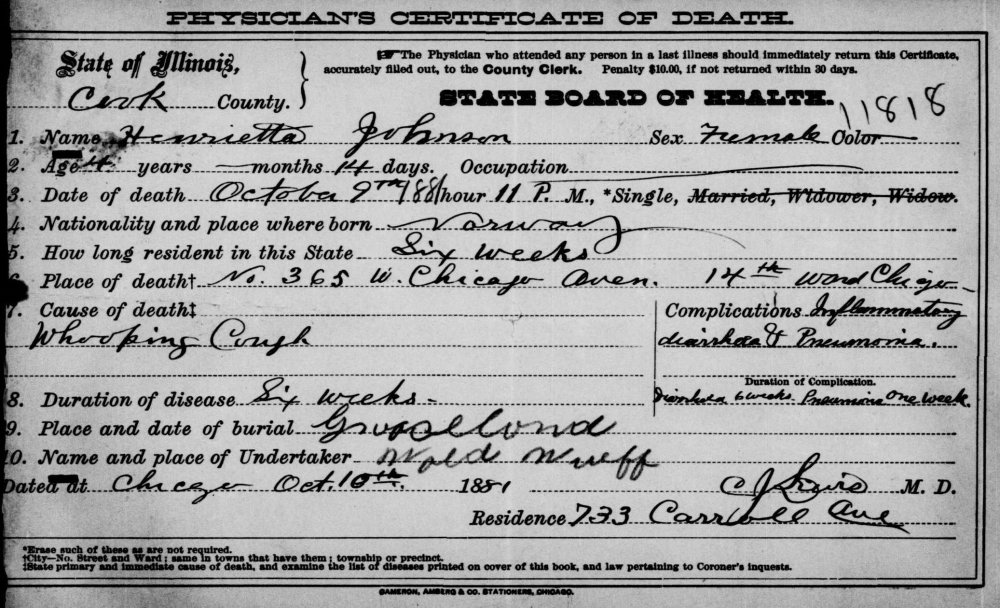 PHYSICIAN'S CERTIFICATE OF DEATH.
State of Illinois,
Cook County.
☞ The Physician who attended any person in a last illness should immediately return this Certificate,
accurately filled out, to the County Clerk. Penalty $10.00, if not returned within 30 days.
STATE BOARD OF HEALTH.
11818
1. Name Henrietta Johnson Sex Female Color
2. Age 4 years — months 14 days. Occupation
3. Date of death October 9th 1881 hour 11 P. M., *Single, Married, Widower, Widow.
4. Nationality and place where born Norway
5. How long resident in this State Six weeks
6. Place of death† No. 365 W. Chicago Aven. 14th Ward Chicago
7. Cause of death‡
Whooping Cough
Complications Inflammatory
diarrhea & Pneumonia.
Duration of Complication.
Diarrhea 6 weeks Pneumonia One week.
8. Duration of disease Six weeks
9. Place and date of burial Graceland
10. Name and place of Undertaker
Dated at Chicago Oct. 10th. 1881 C J Lewis M. D.
Residence 733 Carroll Ave
*Erase such of these as are not required.
†City—No. Street and Ward; same in towns that have them; township or precinct.
‡State primary and immediate cause of death, and examine the list of diseases printed on cover of this book, and law pertaining to Coroner's inquests.
CAMERON, AMBERG & CO. STATIONERS, CHICAGO.